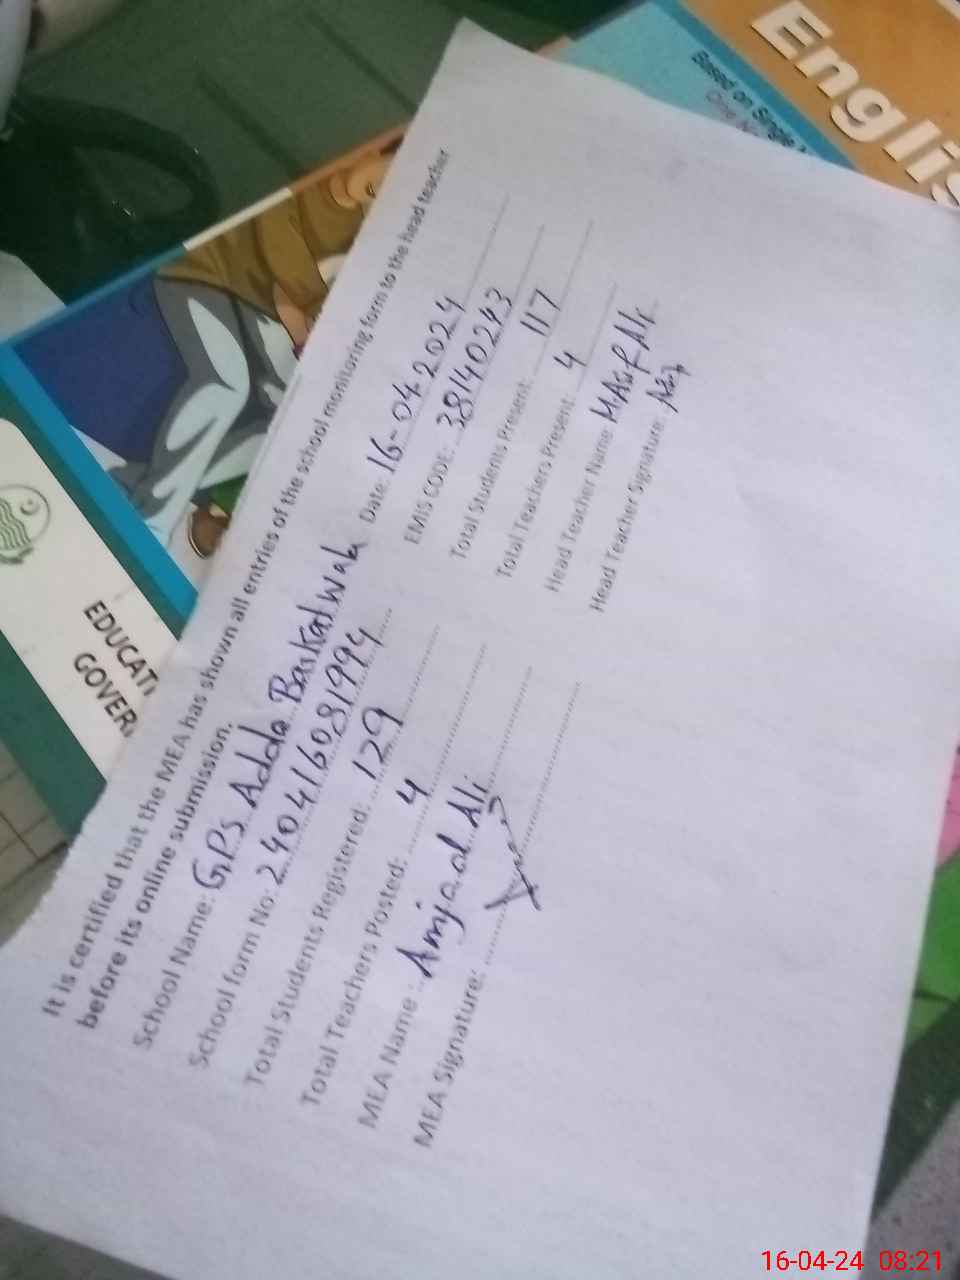 English
Based on Single
EDUCATI
GOVER
It is certified that the MEA has shown all entries of the school monitoring form to the head teacher
before its online submission.
School Name: GPS Adda Baskalwala Date: 16-04-2024
School form No: 2404160819994 EMIS CODE: 38140243
Total Students Registered: 129 Total Students Present: 117
Total Teachers Posted: 4 Total Teachers Present: 4
MEA Name: Amjad Ali Head Teacher Name: M Asif Ali
MEA Signature: Head Teacher Signature:
16-04-24 08:21